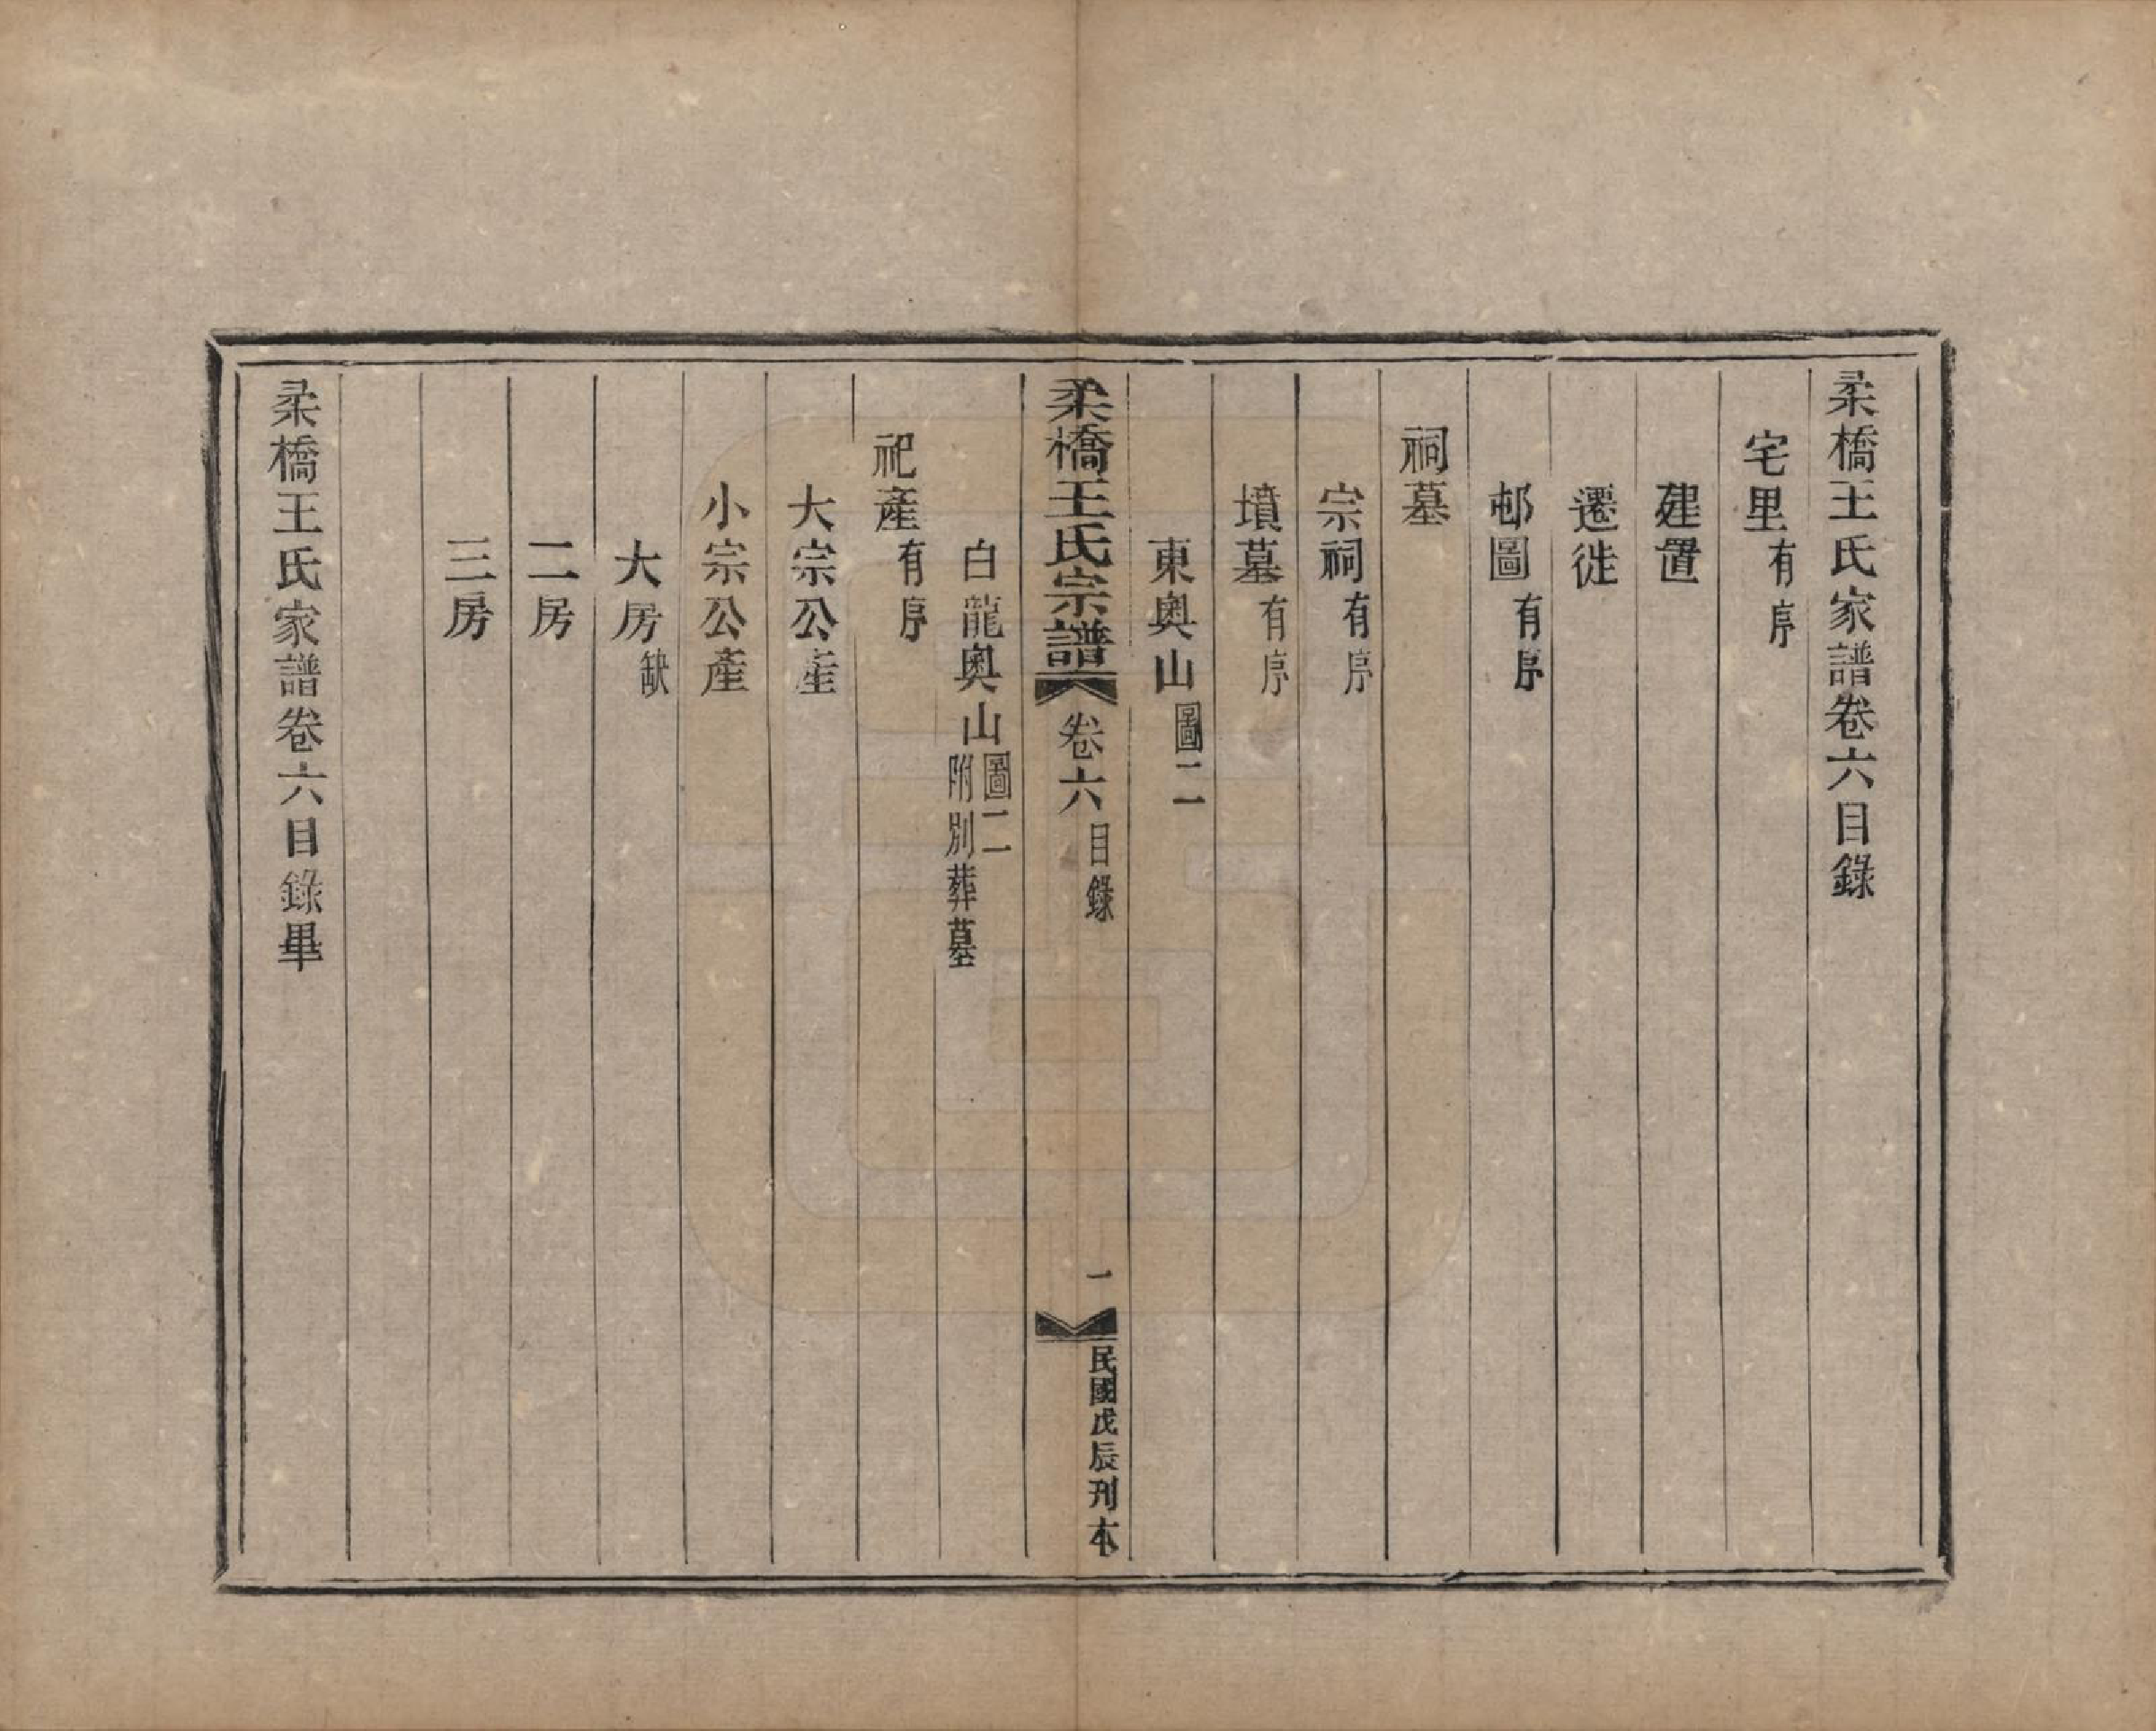 柔橋王氏家譜卷六目錄
宅里有序
建置
遷徙
邨圖有序
祠墓
宗祠有序
墳墓有序
東奧山圖二
柔橋王氏宗譜 卷六 目錄 一 民國戊辰刊本
白龍奧山圖二附別葬墓
祀產有序
大宗公產
小宗公產
大房缺
二房
三房
柔橋王氏家譜卷六目錄畢